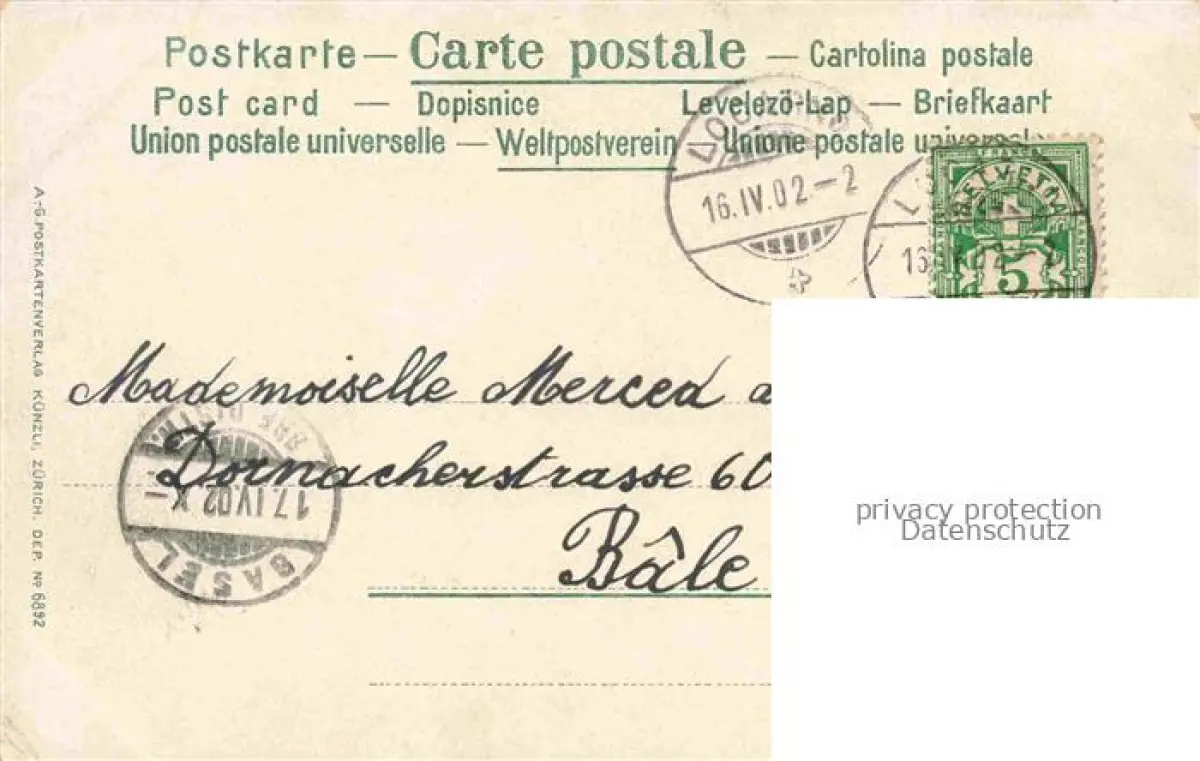 Postkarte — Carte postale — Cartolina postale
Post card — Dopisnice Levelező-Lap — Briefkaart
Union postale universelle — Weltpostverein — Unione postale universale
16.IV.02.–2
HELVETIA
5
A.-G. POSTKARTENVERLAG KÜNZLI, ZÜRICH. DEP. Nº 6892
Mademoiselle Merced
Dornacherstrasse 60
Bâle
17.IV.02.X–
BASEL
privacy protection
Datenschutz